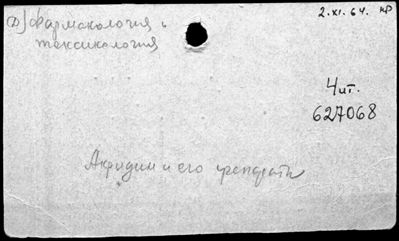 Ф) Фармакология и
токсикология
2.XI.64. кр
Чит.
627068
Акридин и его препараты